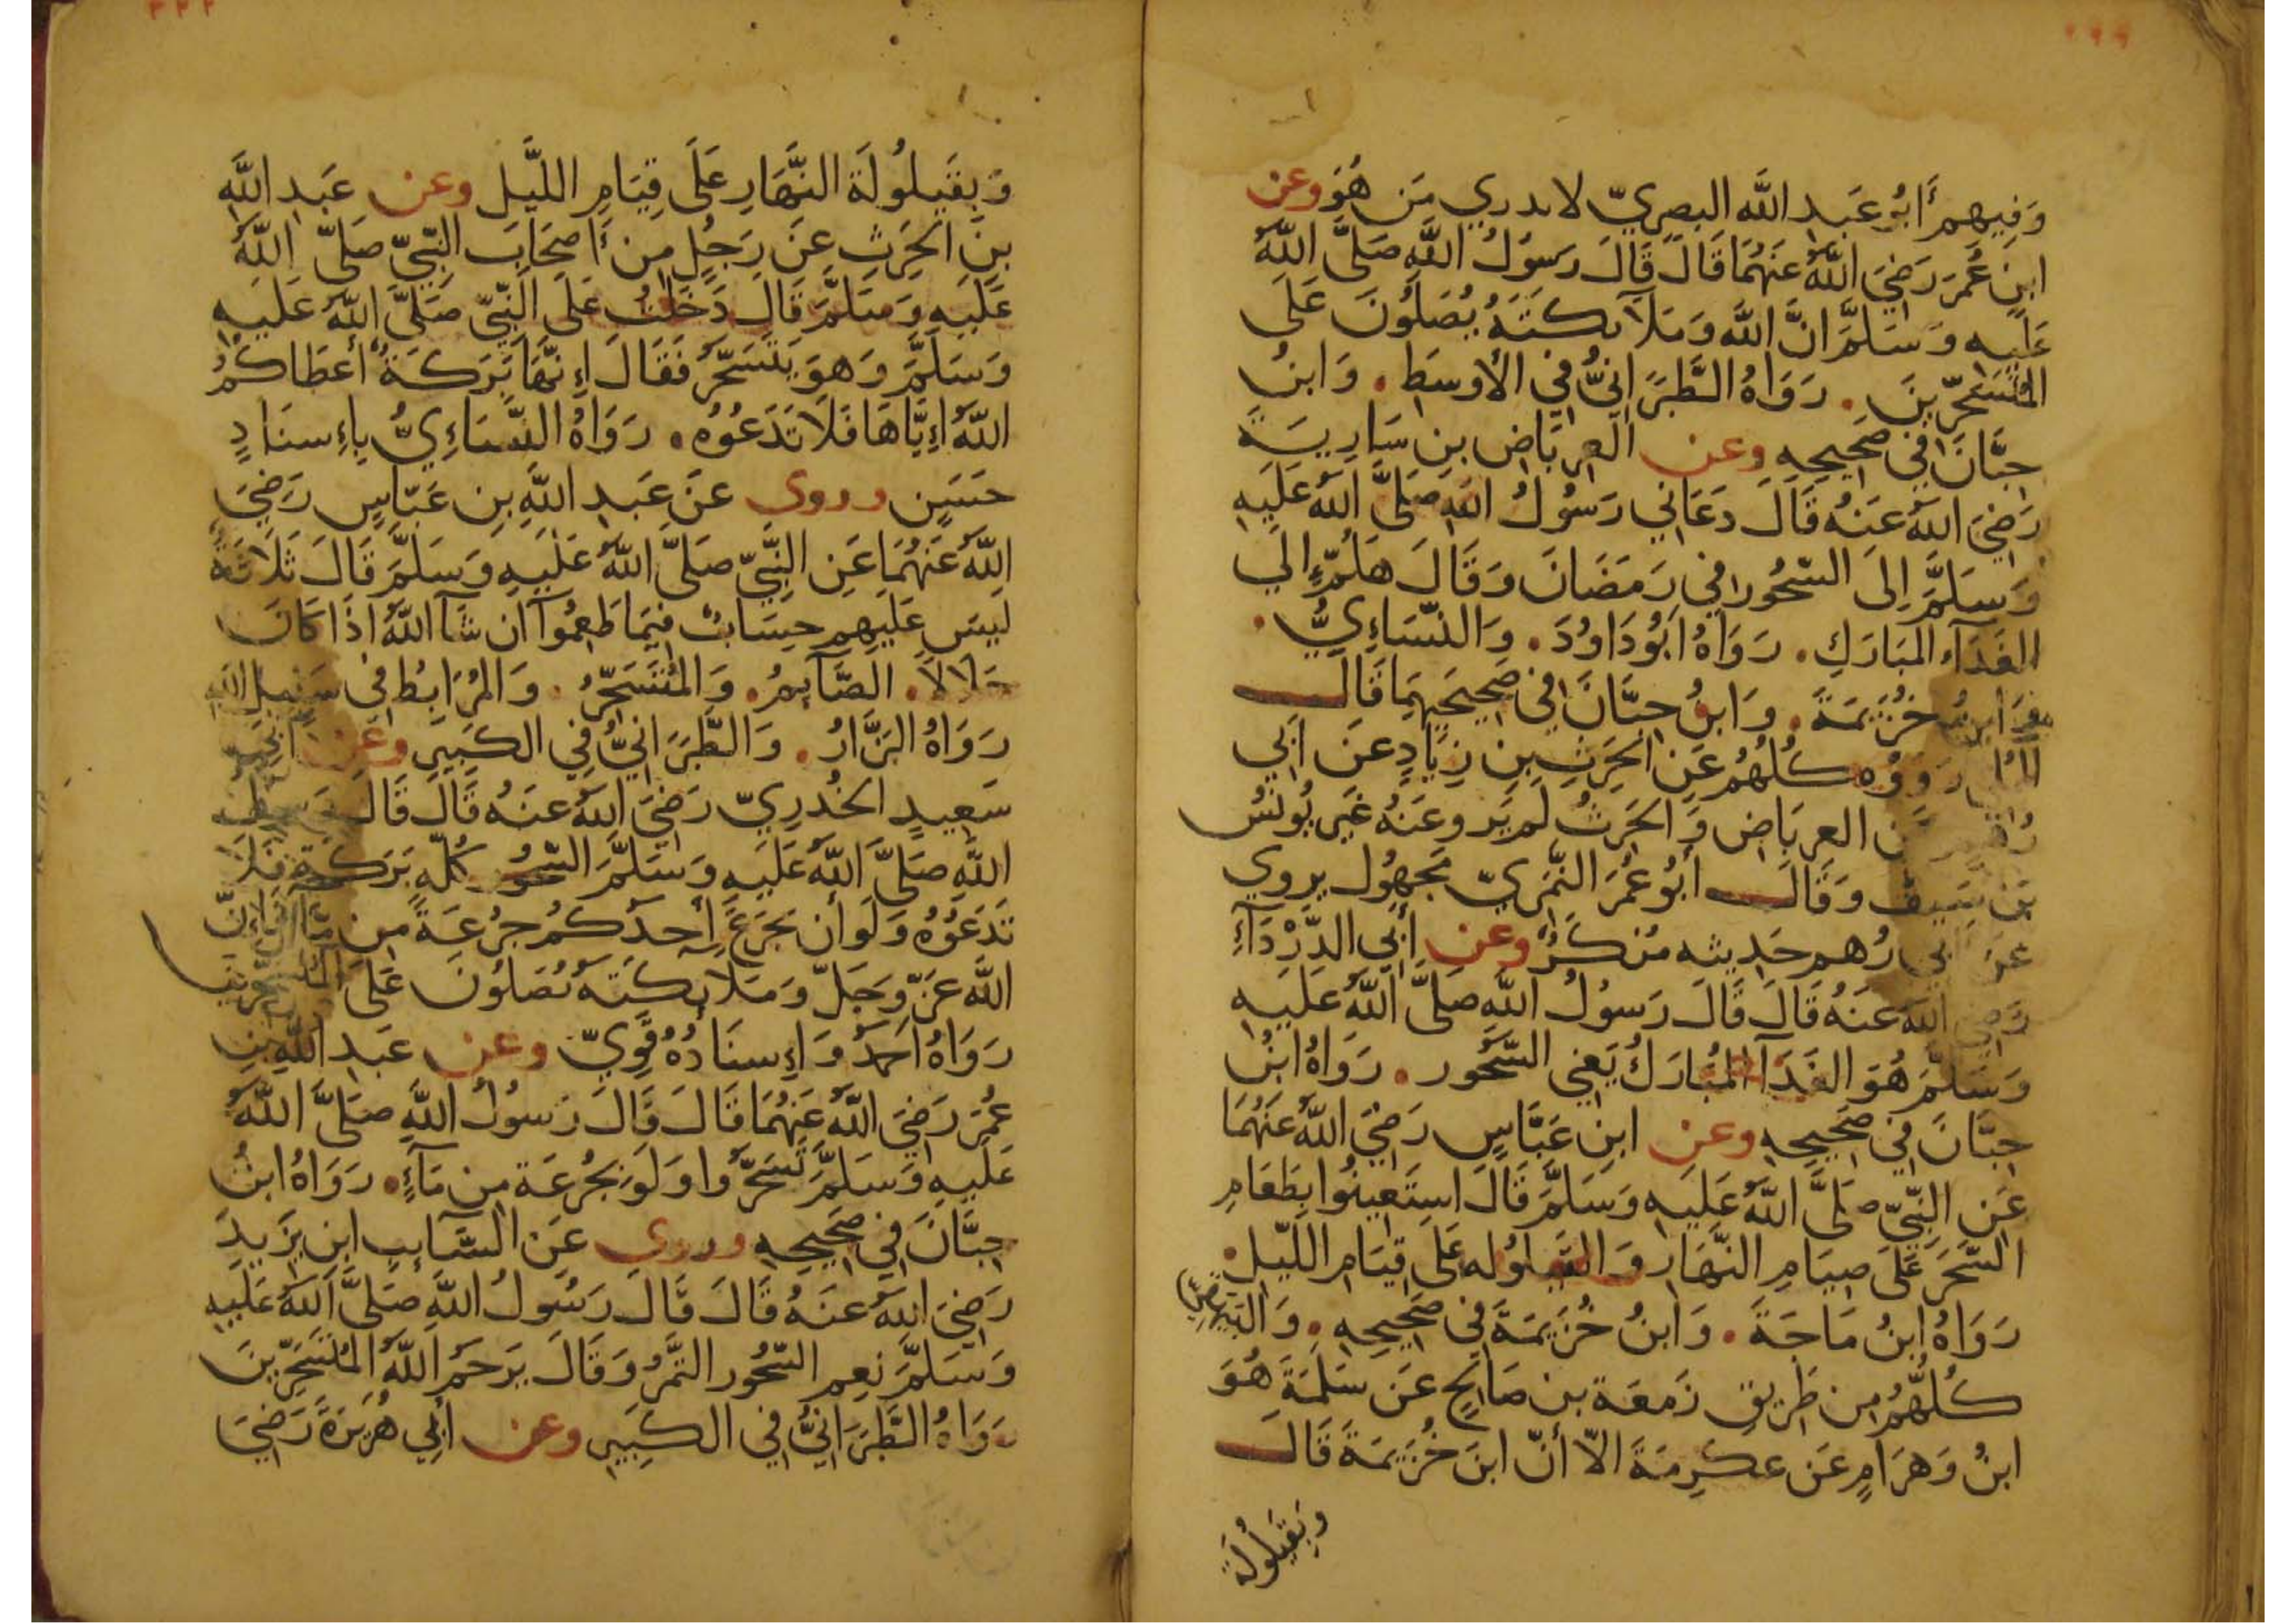 وَفِيهِم أَبُو عَبدِ اللَّه البصرِيّ لا يدري مَن هُوَ وعن
ابنِ عُمَرَ رَضِيَ اللَّهُ عَنهُمَا قَالَ قَالَ رَسَولُ اللَّهِ صَلَّى اللَّهُ
عَلَيهِ وَسَلَّمَ انَّ اللَّه وَمَلَآئكَتَهُ يُصَلُّونَ عَلَى
المُتَسَحِّرِينَ . رَوَاهُ الطَّبَرَانِيُّ فِي الأوسَطِ . وَابنُ
حِبَّانَ فِي صَحِيحِهِ وعن العِربَاضِ بنِ سَارِيَةَ
رَضِيَ اللَّهُ عَنهُ قَالَ دَعَانِي رَسُولُ اللَّهِ صَلَّى اللَّهُ عَلَيهِ
وَسَلَّمَ اِلَى السّحُورِ فِي رَمَضَانَ وَقَالَ هَلُمَّ اِلَى
الغَدَآءِ المُبَارَكِ . رَوَاهُ اَبُو دَاوُدَ . وَالنَّسَاءِيُّ .
وَابنُ خُزَيمَةَ . وَابنُ حِبَّانَ فِي صَحِيحَيهِمَا قَالَ
رَوَوهُ كُلُّهُم عَنِ الحَرِثِ بنِ زِيَادٍ عَن اَبِي
عَنِ العِربَاضِ وَالحَرِثُ لَم يَروِ عَنهُ غَير يُونُسُ
بن سَيف وَقَالَ أبُو عُمَرَ النَّمَرِيّ مَجهُول يروي
عَن أبي رُهم حَدِيثه مُنكَرٌ وعن أبِي الدَّرْدَآءِ
رَضِيَ اللَّهُ عَنهُ قَالَ قَالَ رَسُولُ اللَّهِ صَلَّى اللَّهُ عَلَيهِ
وَسَلَّمَ هُوَ الغَدَآءُ المُبَارَكُ يَعنِي السَّحُور . رَوَاهُ ابنُ
حِبَّانَ فِي صَحِيحِهِ وعن ابنِ عَبَّاسٍ رَضِيَ اللَّهُ عَنهُمَا
عَنِ النَّبِيِّ صَلَّى اللَّهُ عَلَيهِ وَسَلَّمَ قَالَ استَعِينُوا بِطَعَامِ
السَّحَرِ عَلَى صِيَامِ النَّهَارِ وَالقيلوله عَلَى قِيَامِ اللَّيلِ .
رَوَاهُ ابنُ مَاجَةَ . وَابنُ خُزَيمَةَ فِي صَحِيحِهِ . وَالبَيهَقِيّ
كُلُّهُم مِن طَرِيقِ زَمعَة بن صَالِحٍ عَن سَلَمَةَ هُوَ
ابنُ وَهرَامٍ عَن عِكرِمَةَ الاّ أنّ ابنَ خُزَيمَةَ قَالَ
وَبِقَيلُولَة
وَبِقَيلُولَةَ النَّهَارِ عَلَى قِيَامِ اللَّيلِ وعن عَبدِ اللَّهِ
بنِ الحَرِثِ عَن رَجُلٍ مِن أَصحَابِ النَّبِيّ صَلَّى اللَّهُ
عَلَيهِ وَسَلَّمَ قَالَ دَخَلتُ عَلَى النَّبِيّ صَلَّى اللَّهُ عَلَيهِ
وَسَلَّمَ وَهوَ يَتَسَحَّرُ فَقَالَ اِنَّهَا بَرَكَةٌ أعطَاكُمُ
اللَّهُ اِيَّاهَا فَلَا تَدَعُوهُ . رَوَاهُ النَّسَاءِيُّ بِاِسنَادٍ
حَسَنٍ وروى عَن عَبدِ اللَّهِ بنِ عَبّاسٍ رَضِيَ
اللَّهُ عَنهُمَا عَنِ النَّبِيّ صَلَّى اللَّهُ عَلَيهِ وَسَلَّمَ قَالَ ثَلَاثَةٌ
لَيسَ عَلَيهِم حِسَابٌ فِيمَا طَعِمُوآ ان شَآ اللَّهُ اذَا كَانَ
حَلَالاً . الصَّآئِمُ . وَالمُتَسَحِّرُ . وَالمُرَابِطُ فِي سَبِيلِ اللَّهِ
رَوَاهُ البَزَّارُ . وَالطَّبَرَانِيُّ فِي الكَبِيرِ وعن أبي
سَعِيدٍ الخُدرِيّ رَضِيَ اللَّهُ عَنهُ قَالَ قَالَ رَسُولُ
اللَّهِ صَلَّى اللَّهُ عَلَيهِ وَسَلَّمَ السّحُورُ كُلّهُ بَرَكَة فَلَا
تَدَعُوُه وَلَو أن يَجرَعَ أحدُكُم جُرعَةً مِن مَآءٍ فَاِنّ
اللَّه عَزّ وَجَلّ وَمَلَائِكَتَهُ يُصَلُّونَ عَلَى المُتَسَحِّرِينَ
رَوَاهُ اَحمَدُ وَاِسنَادُهُ قَوِيّ وعن عَبدِ اللَّهِ بنِ
عُمَرَ رَضِيَ اللَّهُ عَنهُمَا قَالَ قَالَ رَسُولُ اللَّهِ صَلَّى اللَّهُ
عَلَيهِ وَسَلَّمَ تَسَحَّرُوا وَلَو بِجُرعَة مِن مَآءٍ . رَوَاهُ ابنُ
حِبَّانَ فِي صَحِيحِهِ وروي عَنِ السَّآئِبِ ابنِ يَزِيدَ
رَضِيَ اللَّهُ عَنهُ قَالَ قَالَ رَسُولُ اللَّهِ صَلَّى اللَّهُ عَلَيهِ
وَسَلَّمَ نِعم السّحُور التَّمرُ وَقَالَ يَرحَمُ اللَّهُ المُتَسَحِّرِينَ
رَوَاهُ الطَّبَرَانِيُّ فِي الكَبِيرِ وعن أبِي هُرَيرَةَ رَضِيَ